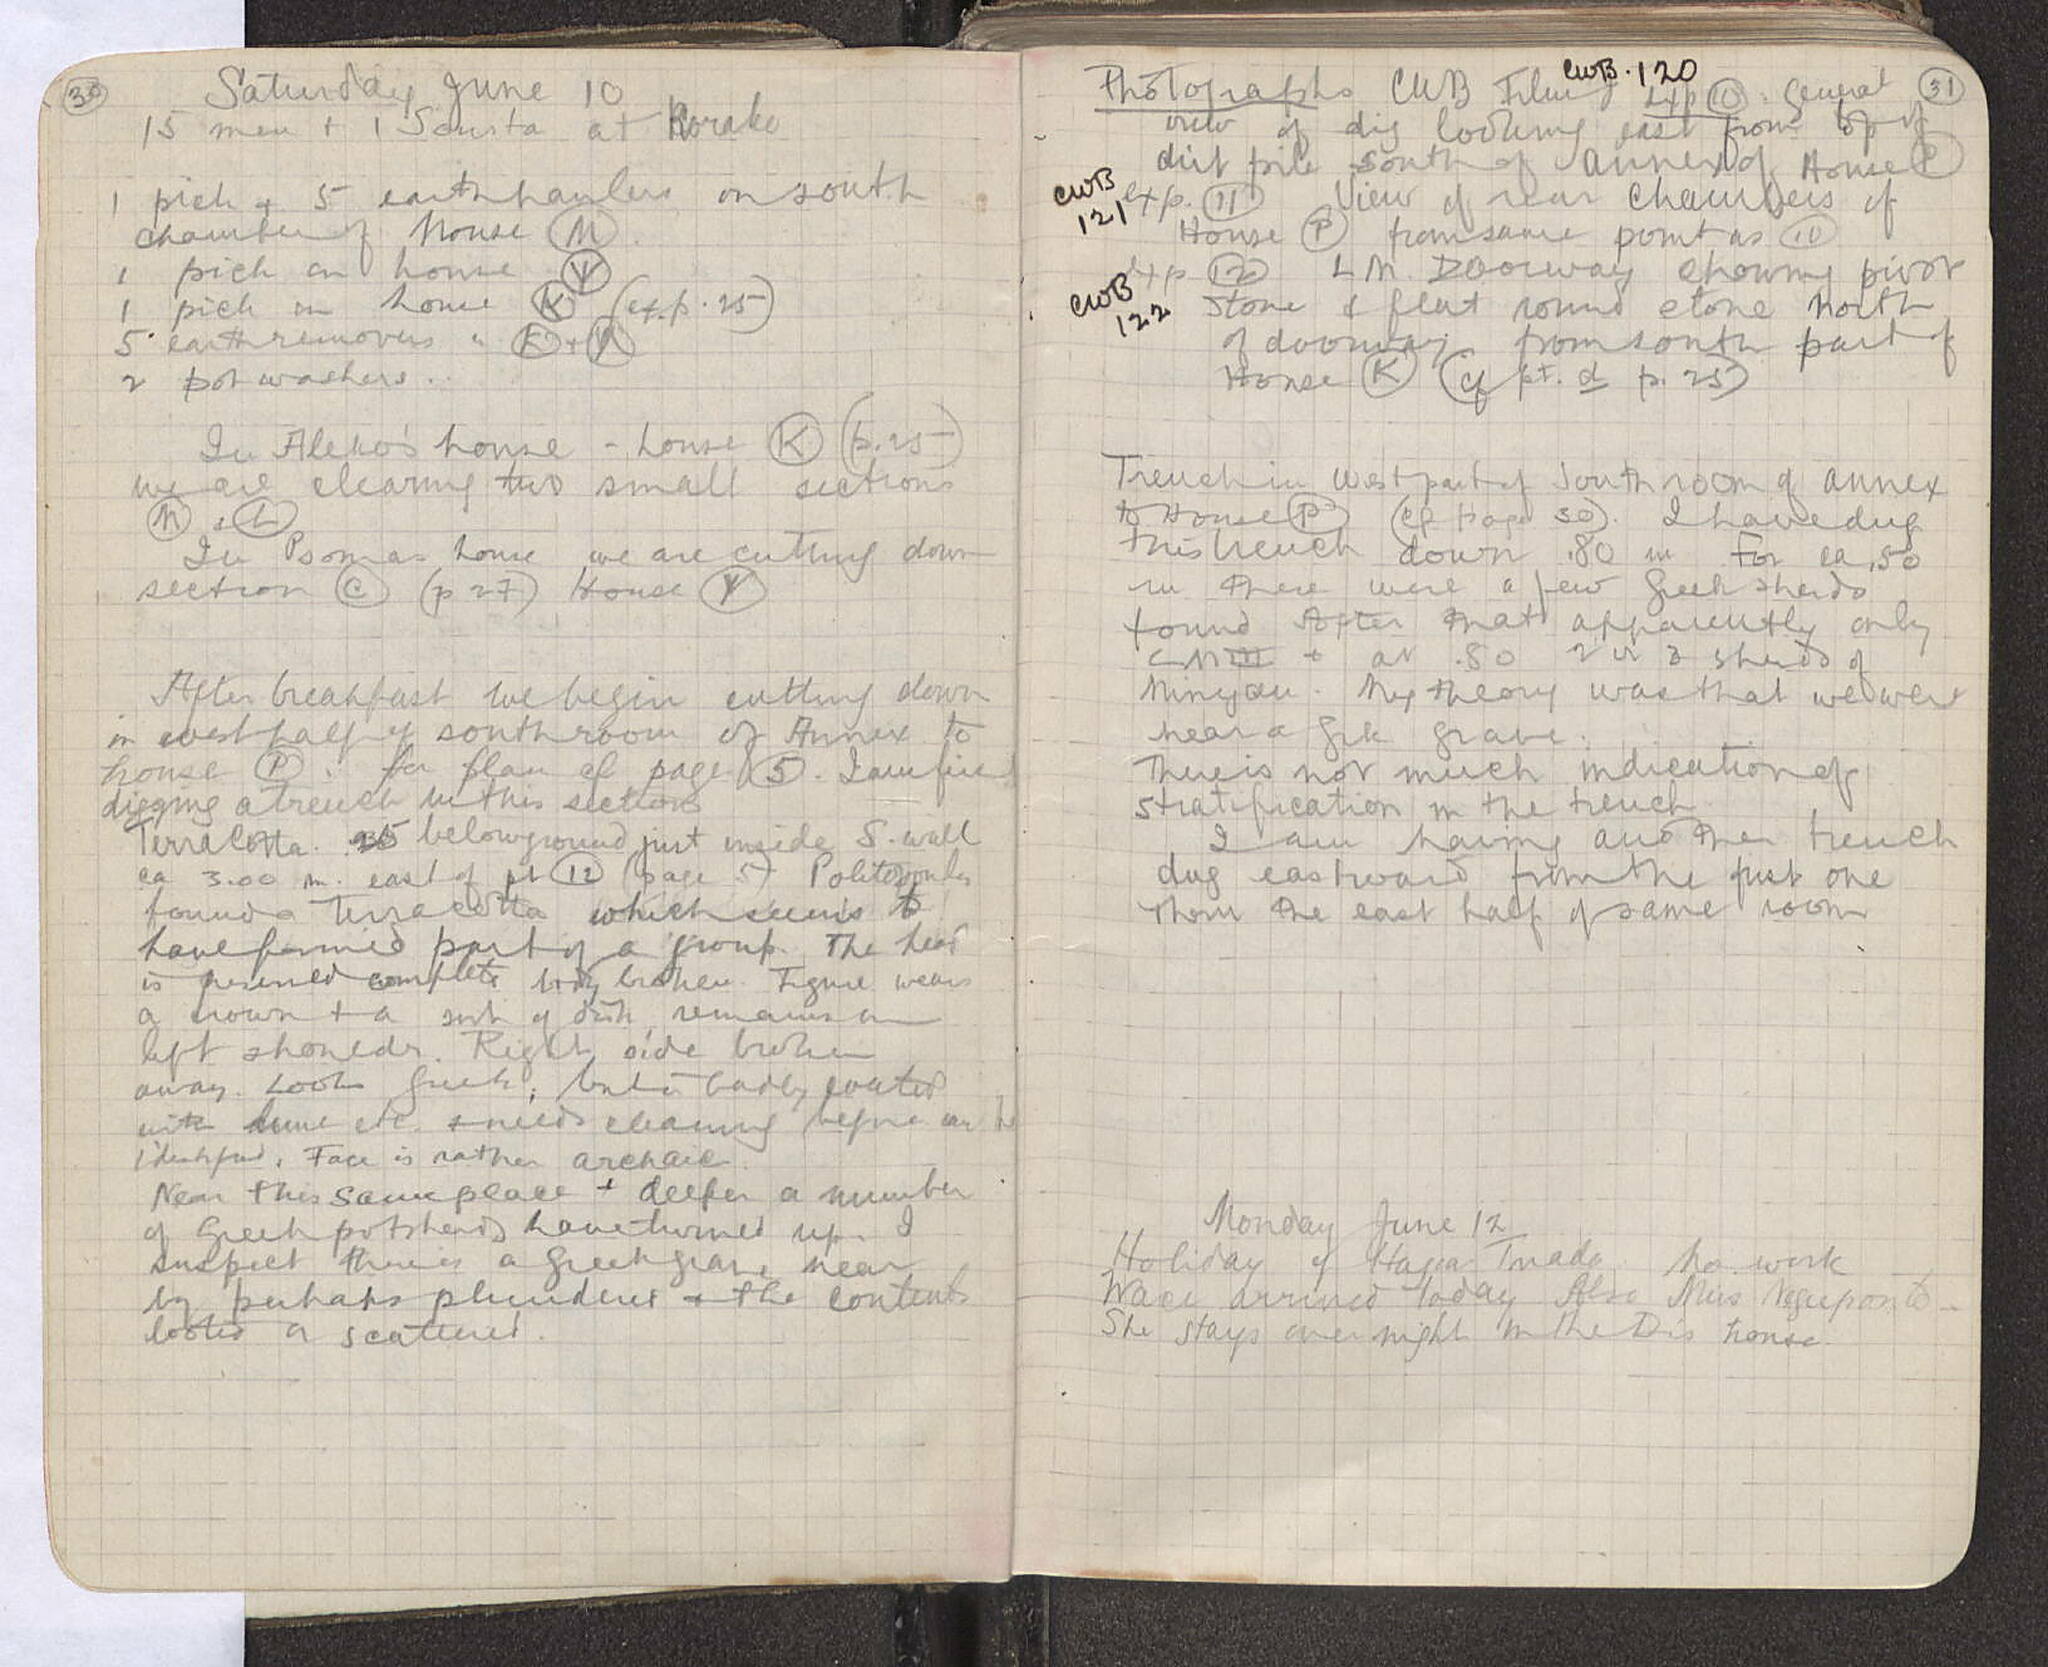 30
Saturday June 10
15 men + 1 Sousta at Korako
1 pick + 5 earth haulers on south
chamber of House M.
1 pick on house Ψ
1 pick on house K (cf. p. 25)
5 earth removers " K + Ψ
2 pot washers..
In Aleko's house - house K (p. 25)
we are clearing two small sections
M + L
In Psomas house we are cutting down
section C (p 27) House Ψ
After breakfast we begin cutting down
in west half of south room of Annex to
house P. for plan cf page 5. I am first
digging a trench in this section
Terracotta. below ground just inside S. wall
ca 3.00 m. east of pt 12 (page 5)
found a Terracotta which seems to
have formed part of a group. The head
is preserved complete body broken. Figure wears
a crown + a sort of disk remains on
left shoulder. Right side broken
away. Looks Greek, but is badly coated
with lime etc. + needs cleaning before can be
identified. Face is rather archaic.
Near this same place + deeper a number
of Greek potsherds have turned up. I
suspect there is a Greek grave near
by perhaps plundered + the contents
looted or scattered.
31
CWB. 120
Photographs CWB Film exp 10. General
view of dig looking east from top of
dirt pile south of annex of House P
CWB 121 exp. 11 View of rear chambers of
House P from same point as 10
exp 12 L M. Doorway showing pivot
CWB 122 stone + flat round stone north
of doorway from south part of
House K (cf pt. d p. 25)
Trench in west part of South room of annex
to House P (cf page 30). I have dug
this trench down .80 m For ca .50
m there were a few Greek sherds
found After that apparently only
LM III + at .80 2 or 3 sherds of
Minyan. My theory was that we were
near a Grk grave.
There is not much indication of
stratification in the trench.
I am having another trench
dug eastward from the first one
thru the east half of same room
Monday June 12
Holiday of Hagia Triada no work
Wace arrived today Also Miss Negreponte-
She stays over night in the Di's house.